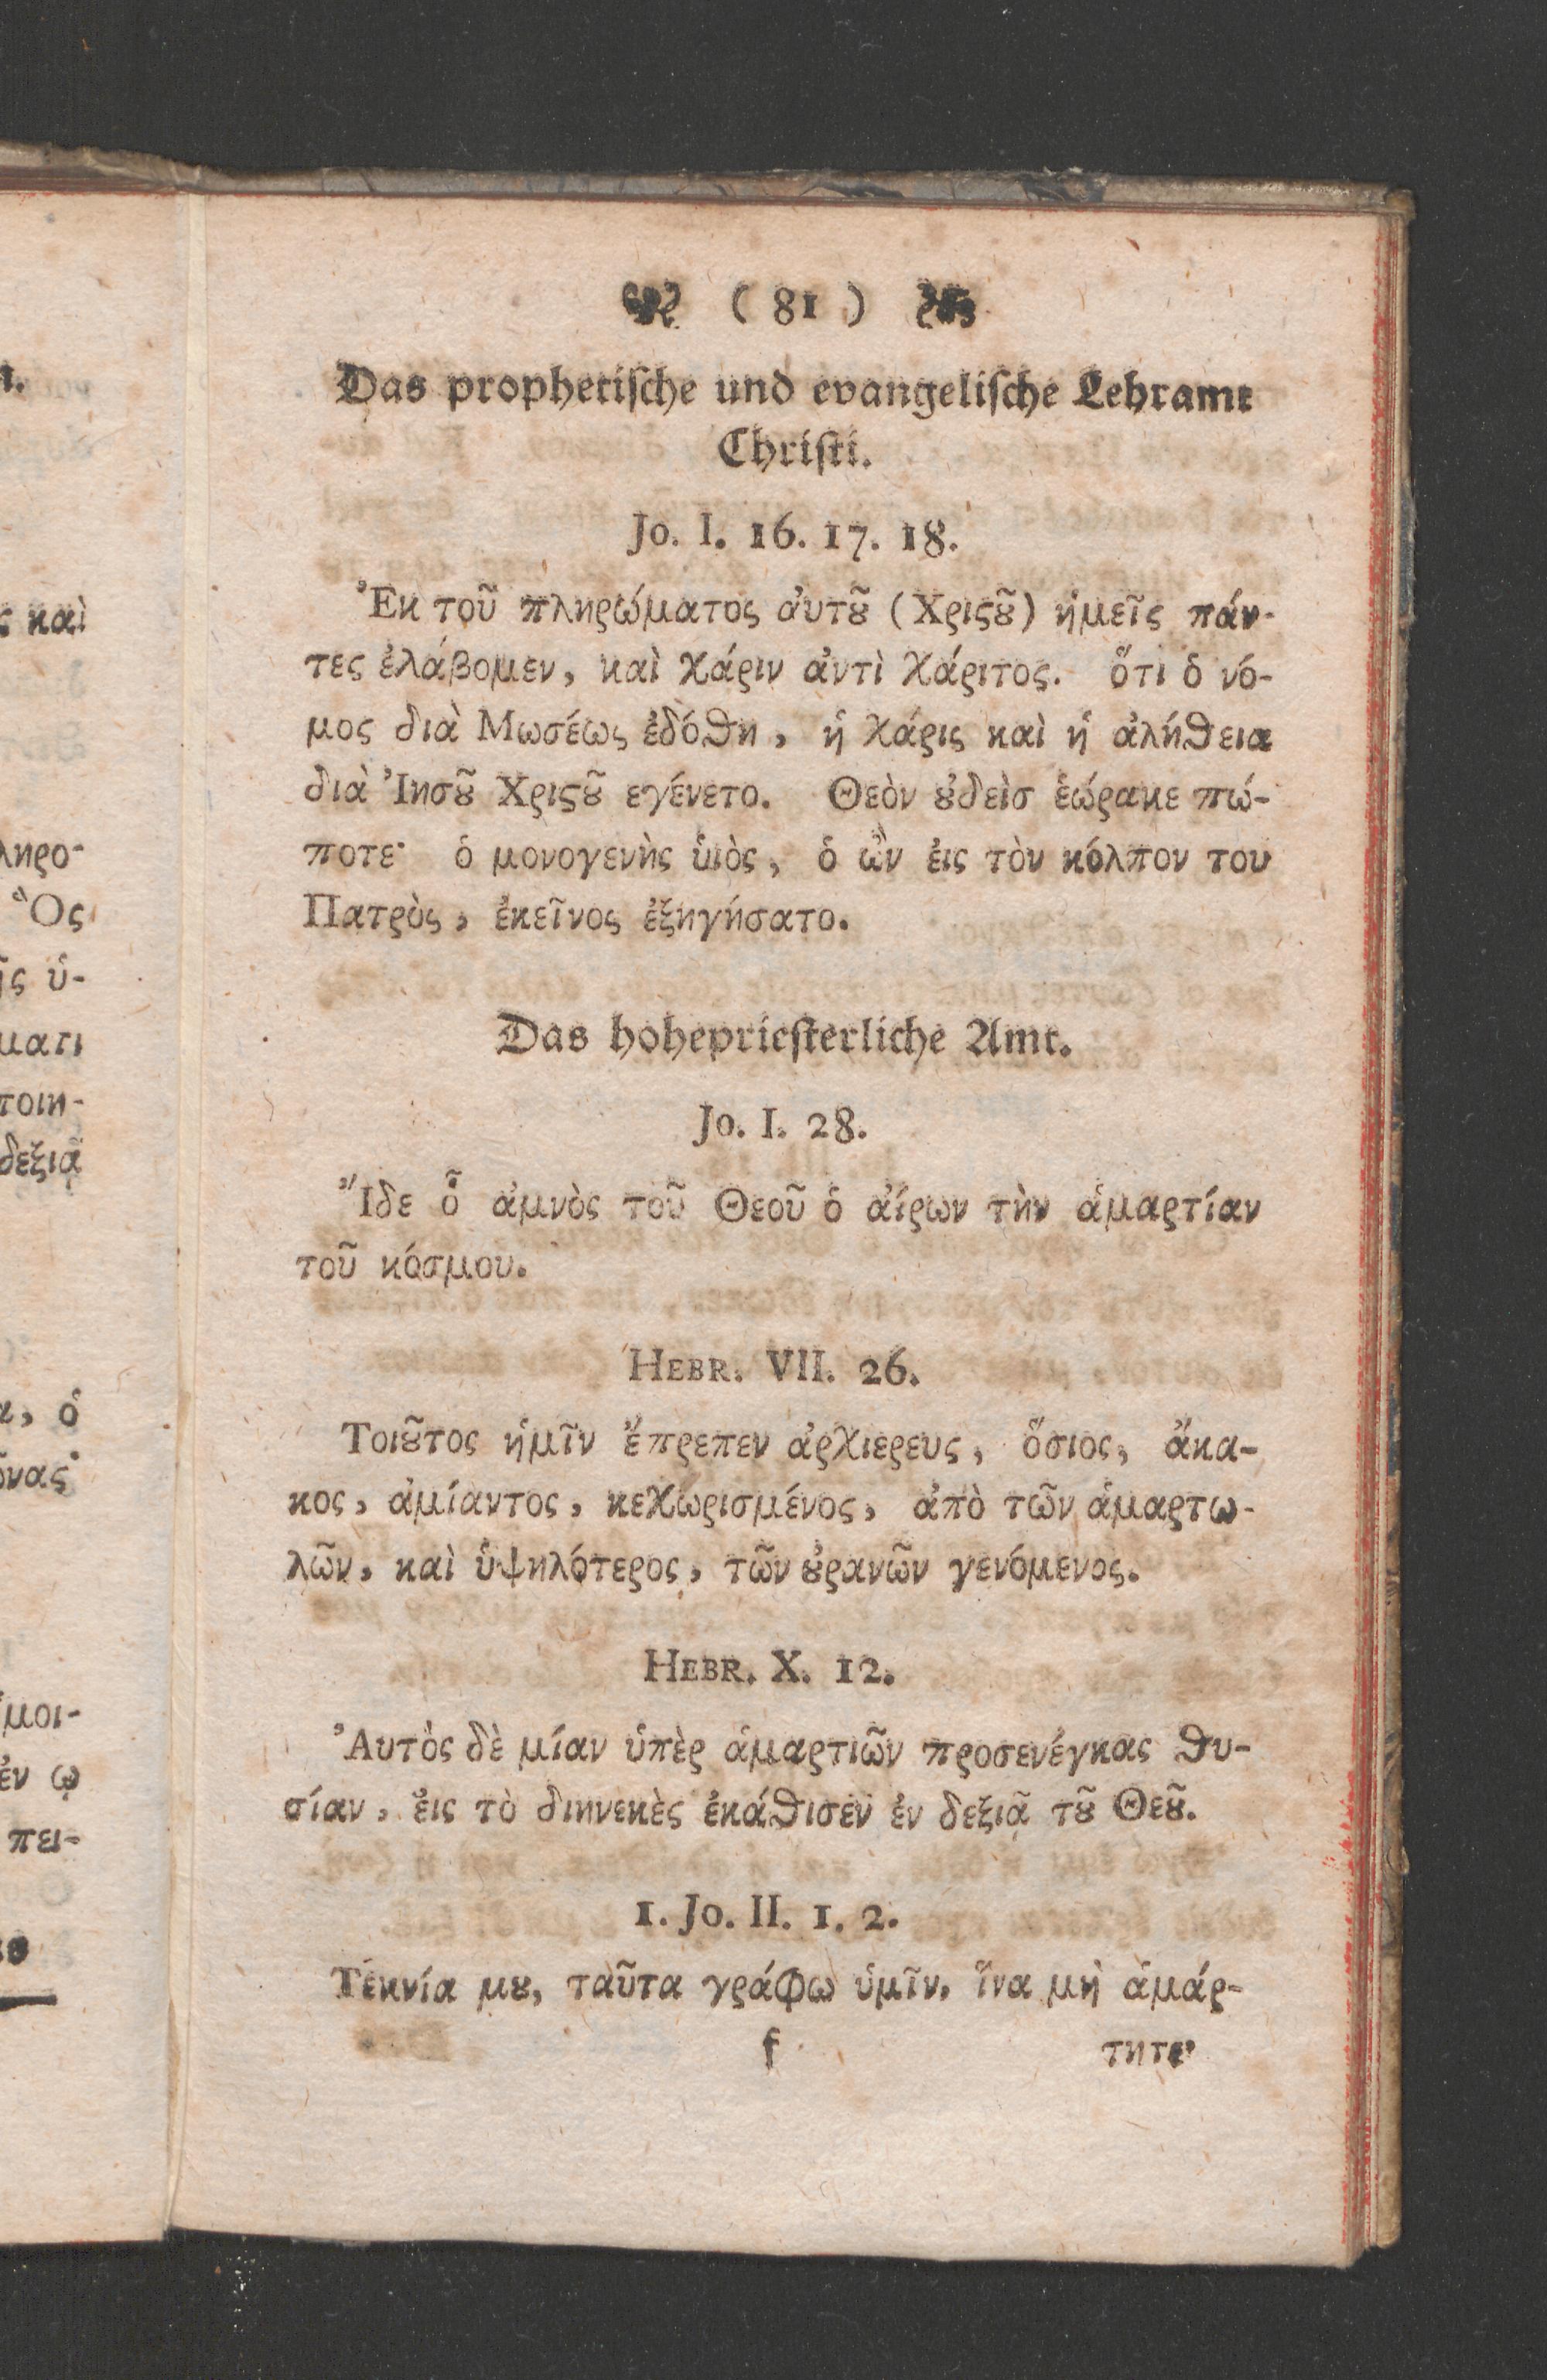 ( 81 )
Das prophetiſche und evangeliſche Lehramt
Chriſti.
Jo. I. 16. 17. 18.
Ἐκ τοῦ πληρώματος ἀυτȣ͂ (Χριϛȣ͂) ἡμεῖς πάν-
τες ἐλάβομεν, καὶ χάριν ἀντὶ χάριτος. ὅτι ὁ νό-
μος διὰ Μωσέως ἐδόθη, ἡ χάρις καὶ ἡ ἀλήθεια
διὰ Ἰησȣ͂ Χριϛȣ͂ εγένετο. Θεὸν ȣ̓δεὶσ ἑώρακε πώ-
ποτε· ὁ μονογενὴς ὑιὸς, ὁ ὢν ἐις τὸν κόλπον του
Πατρὸς, ἐκεῖνος ἐξηγήσατο.
Das hoheprieſterliche Amt.
Jo. I. 28.
Ἴδε ὁ͂ ἀμνὸς τοῦ Θεοῦ ὁ ἀίρων τὴν ἁμαρτίαν
τοῦ κόσμου.
Hebr. VII. 26.
Τοιȣ͂τος ἡμῖν ἔπρεπεν ἀρχιερευς, ὅσιος, ἄκα-
κος, ἀμίαντος, κεχωρισμένος, ἀπὸ τῶν ἁμαρτω-
λῶν, καὶ ὑψηλότερος, τῶν ȣ̓ρανῶν γενόμενος.
Hebr. X. 12.
Ἀυτὸς δὲ μίαν ὑπὲρ ἁμαρτιῶν προσενέγκας θυ-
σίαν, ἐις τὸ διηνεκὲς ἐκάθισεν ἐν δεξιᾷ τȣ͂ Θεȣ͂.
1. Jo. II. 1. 2.
Τεκνία μȣ, ταῦτα γράφω ὑμῖν, ἵνα μὴ ἁμάρ-
f τητε·